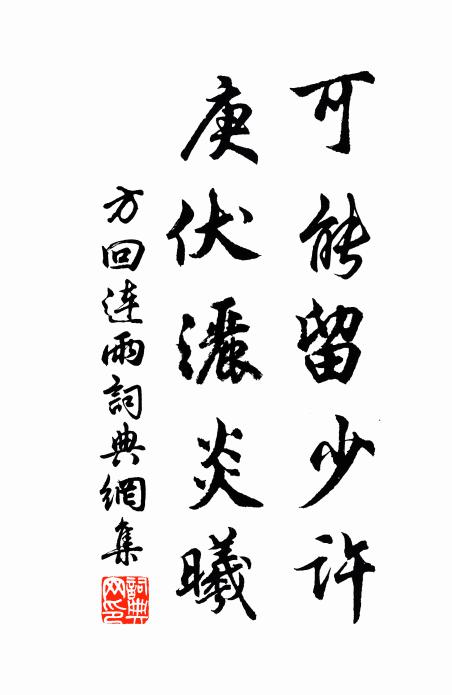 可能留少許
庚伏灑炎曦
方回連雨詞典網集
詞典網印